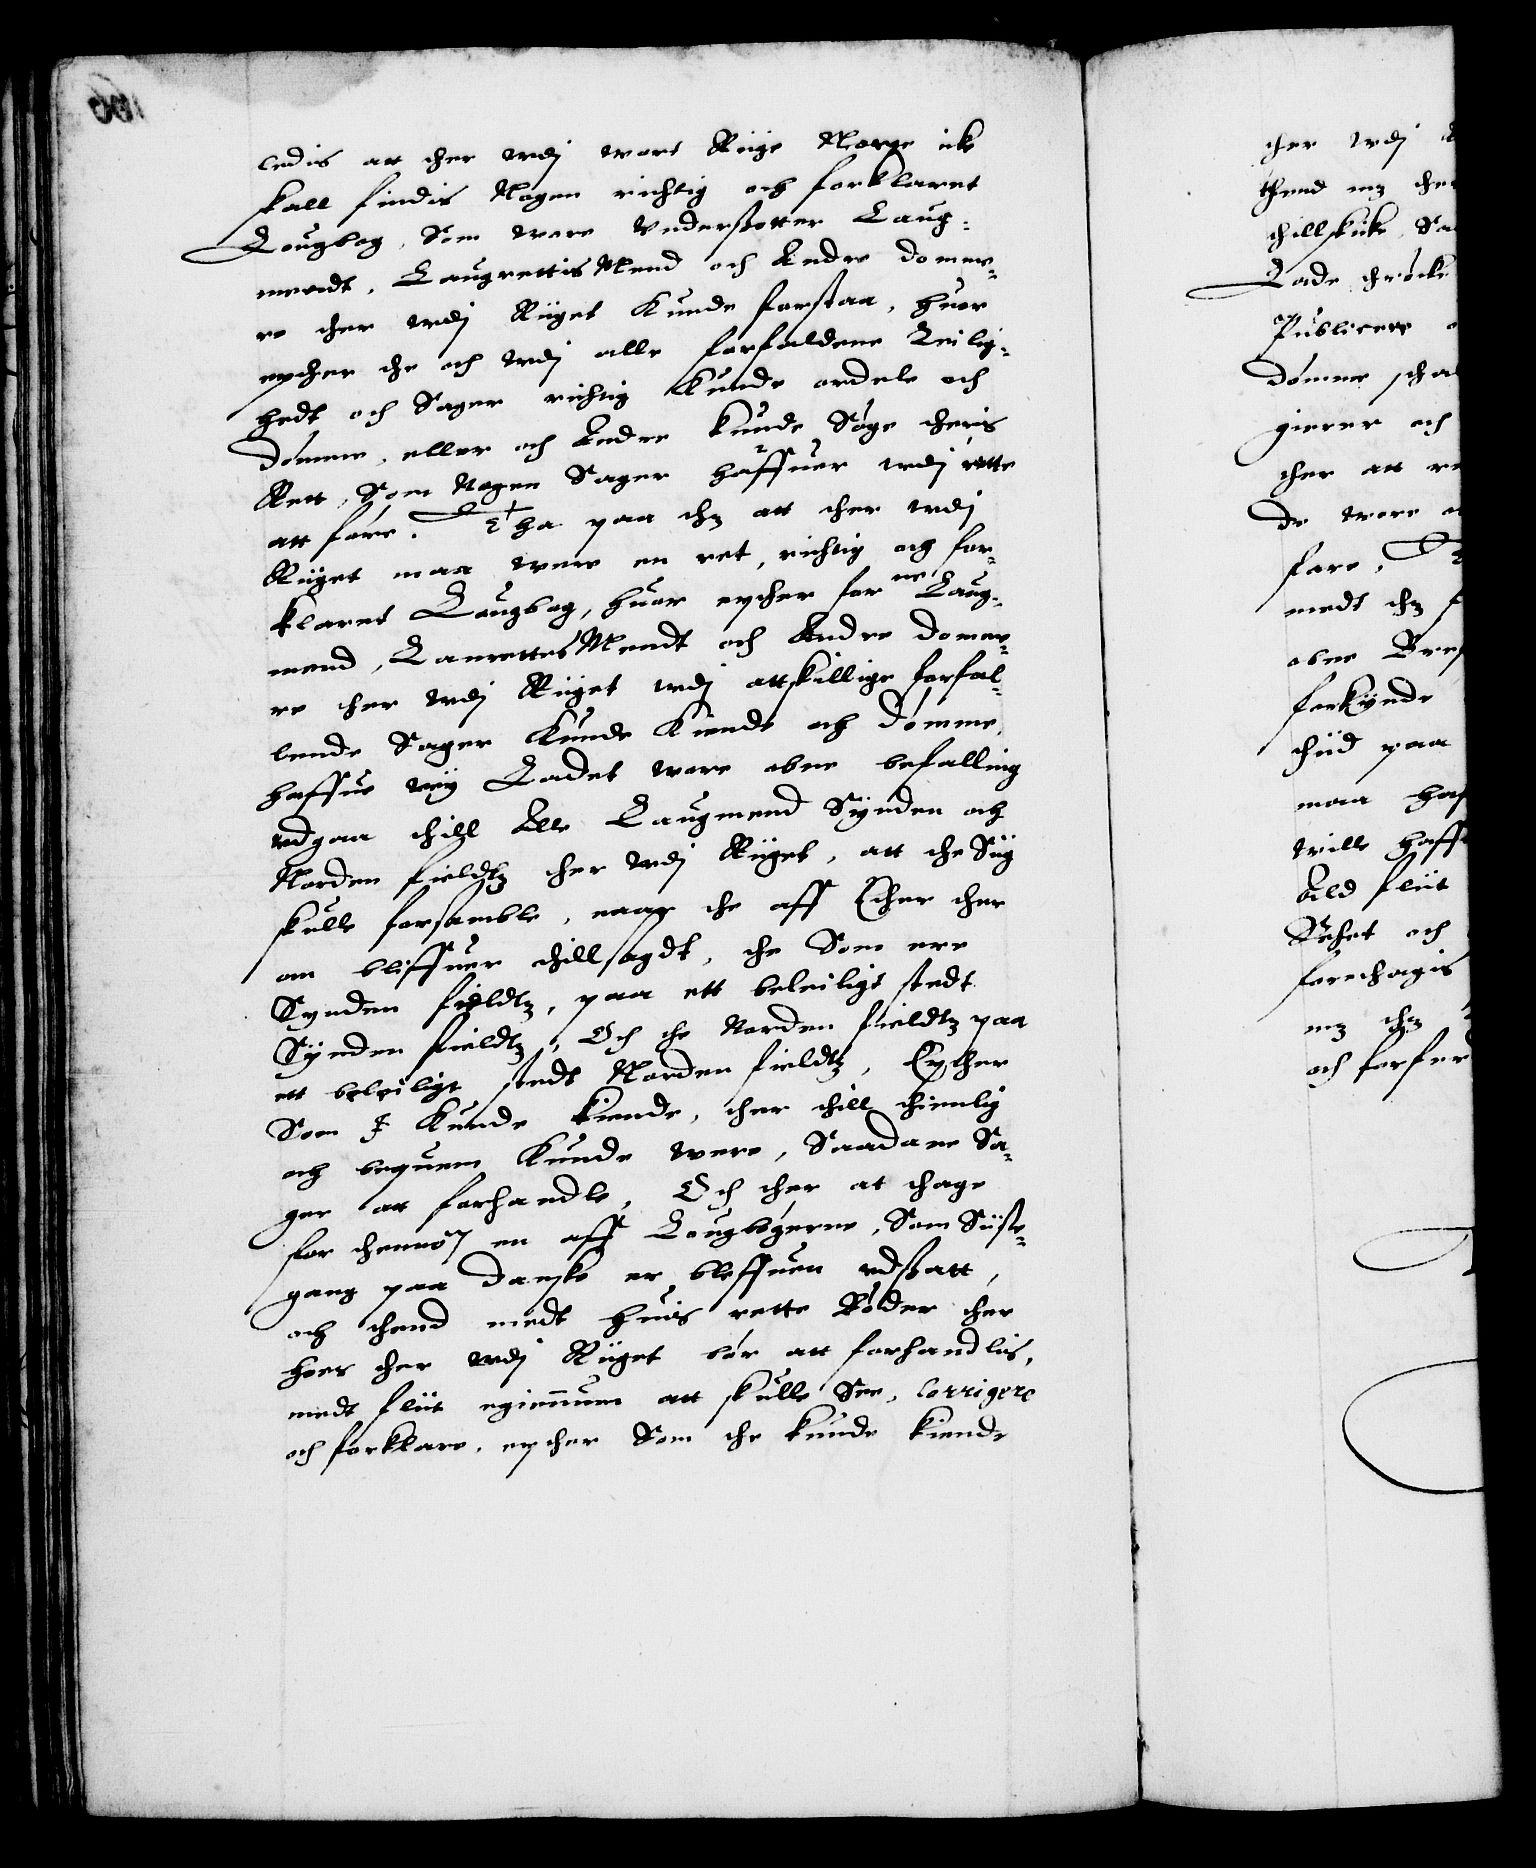 ledis att ther wdj wort Riige Norge icke
skall findis Nogen richtig och forklaret
Lougbog, Som wore Vndersotter Laug=
mendt, LaugrettisMend och Andre domme=
re ther wdj Riiget Kunde forstaa, huor
epther the och wdj alle forfaldene Leilig=
hedt och Sager richtig Kunde ordele och
dømme, eller och Andre kunde Søge theris
Rett, Som Nogen Sager haffuer wdj rette
att føre. Tha paa thz att ther wdj
Riiget maa were en ret, richtig och for=
klaret Lougbog, huor epther forne Laug=
mend, LaurettesMendt och Andre domme=
re ther wdj Riiget wdj attskillige forfal=
lende Sager Kunde Kiende och dømme,
haffue wij Ladet wore obne befalling
vdgaa thill Alle Laugmend Synden och
Norden fieldtz ther wdj Riiget, att the Siig
skulle forsamble, naar the aff Ether ther
om bliffuer thillsagdt, the Som ere
Synden fieldtz, paa ett beleiligt stedt
Synden fieldtz, Och the Norden fieldtz paa
ett beleiligt stedt Norden fieldtz, Epther
Som I Kunde kiende, ther thill thienlig
och bequem Kunde were, Saadane Sa=
ger att forhandle, Och ther at thage
for thennom en aff Lougbøgerne, Som Siiste=
gang paa Danske er bleffuen vdsatt,
och thend medt huis rette Bøder ther
hoes ther wdj Riiget bør att forhandlis,
medt fliit egiennum att skulle See, Corrigere
och forklare, epther Som the kunde kiende
ther wdj
thend mz
thillskicke
Lade thrøcke
Publicere
dømme
gierer och
ther att
de wore
fare,
medt thz
obne
forkynde
thiid paa
maa
wille
Ald fliit
och
forthagis
mz thz
och